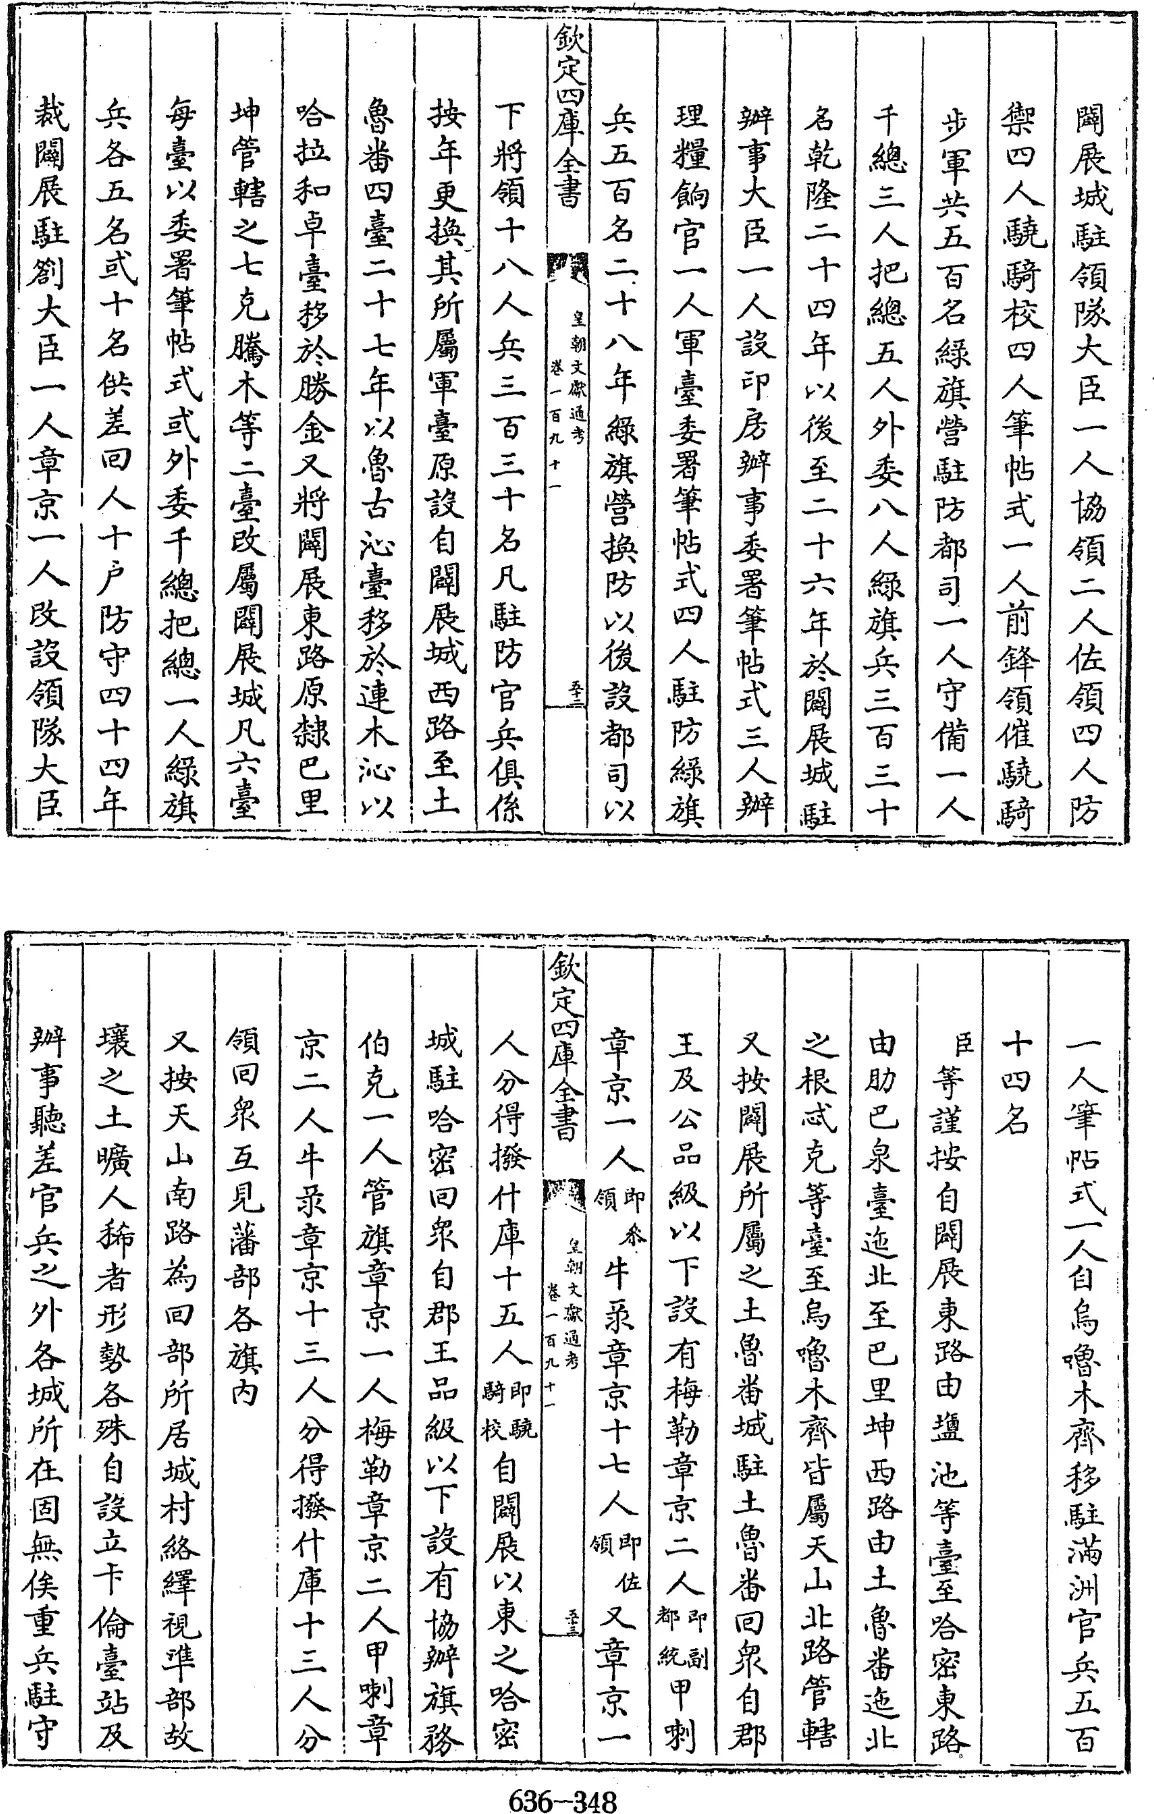 闢展城駐領隊大臣一人協領二人佐領四人防
禦四人驍騎校四人筆帖式一人前鋒領催驍騎
步軍共五百名綠旗營駐防都司一人守備一人
千總三人把總五人外委八人綠旗兵三百三十
名乾隆二十四年以後至二十六年於闢展城駐
辦事大臣一人設印房辦事委署筆帖式三人辦
理糧餉官一人軍臺委署筆帖式四人駐防綠旗
兵五百名二十八年綠旗營換防以後設都司以
欽定四庫全書
皇朝文獻通考
卷一百九十一
下將領十八人兵三百三十名凡駐防官兵俱係
按年更換其所屬軍臺原設自闢展城西路至土
魯番四臺二十七年以魯古沁臺移於連木沁以
哈拉和卓臺移於勝金又將闢展東路原隸巴里
坤管轄之七克騰木等二臺改屬闢展城凡六臺
每臺以委署筆帖式或外委千總把總一人綠旗
兵各五名或十名供差回人十户防守四十四年
裁闢展駐劄大臣一人章京一人改設領隊大臣
一人筆帖式一人自烏嚕木齊移駐滿洲官兵五百
十四名
臣等謹按自闢展東路由鹽池等臺至哈密東路
由肋巴泉臺迤北至巴里坤西路由土魯番迤北
之根忒克等臺至烏嚕木齊皆屬天山北路管轄
又按闢展所屬之土魯番城駐土魯番回衆自郡
王及公品級以下設有梅勒章京二人即副都統甲喇
章京一人即叅領牛彔章京十七人即佐領又章京一
欽定四庫全書
皇朝文獻通考
卷一百九十一
人分得撥什庫十五人即驍騎校自闢展以東之哈密
城駐哈密回衆自郡王品級以下設有協辦旗務
伯克一人管旗章京一人梅勒章京二人甲喇章
京二人牛彔章京十三人分得撥什庫十三人分
領回衆互見藩部各旗内
又按天山南路為回部所居城村絡繹視準部故
壤之土曠人稀者形勢各殊自設立卡倫臺站及
辦事聽差官兵之外各城所在固無俟重兵駐守
636-348